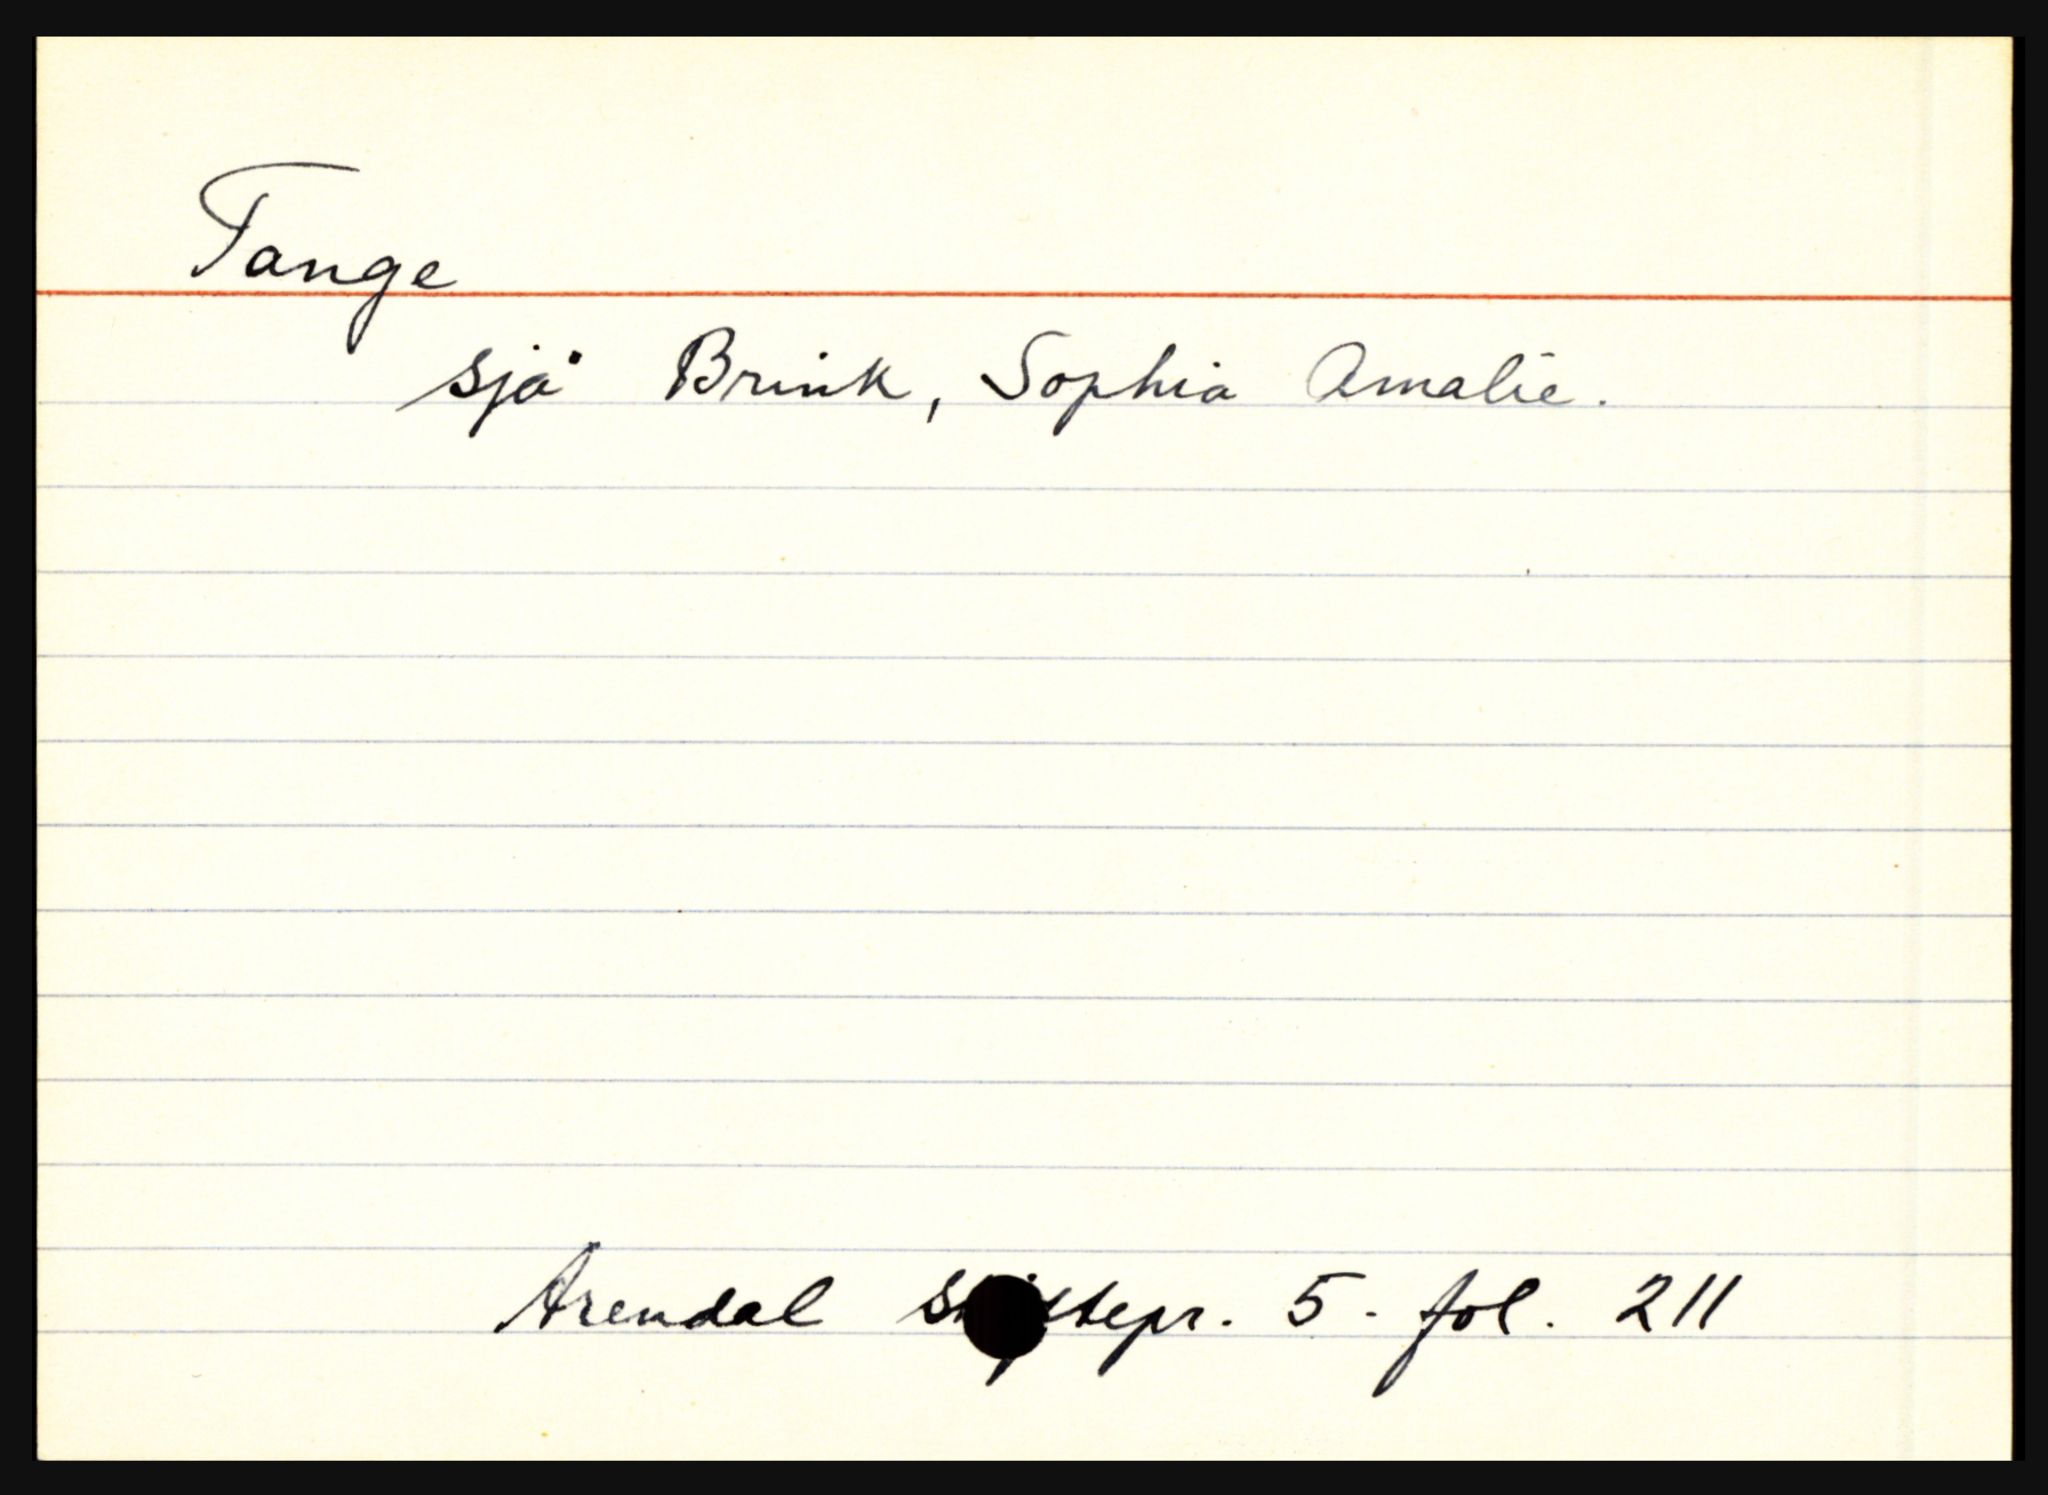 Tange
sjå Brink, Sophia Amalie.
Arendal skiftepr. 5 - fol. 211